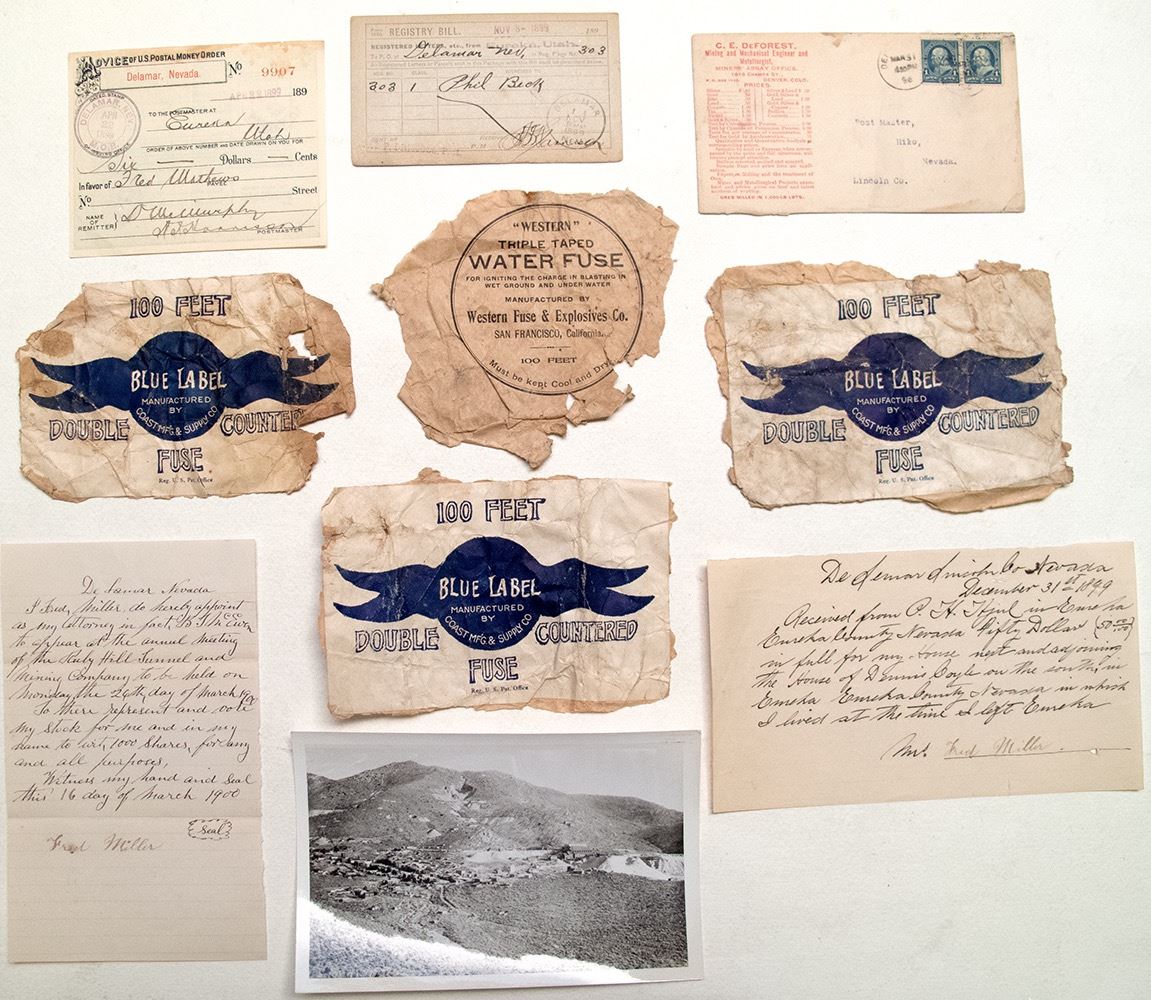 ADVICE OF U.S. POSTAL MONEY ORDER
Delamar, Nevada.
No 9907
APR 1899 189
DELAMAR, NEV.
APR
M.O.B.
TO THE POSTMASTER AT
Eureka
Utah
ORDER OF ABOVE NUMBER AND DATE DRAWN ON YOU FOR
Six — Dollars — Cents
In favor of Fred Mathews
PAYEE
No Street
NAME OF REMITTER} D McMurphy
POSTMASTER
REGISTRY BILL.
NOV 1899 189
Delamar Nev, 303
303 1 Phil Beck
DELAMAR
NOV
C. E. DeFOREST,
Mining and Mechanical Engineer and
Metallurgist,
MINERS' ASSAY OFFICE.
DENVER, COLO.
PRICES.
ORES MILLED IN 1,000 LB LOTS.
MAR 31
Post Master,
Hiko,
Nevada.
Lincoln Co.
"WESTERN"
TRIPLE TAPED
WATER FUSE
FOR IGNITING THE CHARGE IN BLASTING IN
WET GROUND AND UNDER WATER
MANUFACTURED BY
Western Fuse & Explosives Co.
SAN FRANCISCO, California.
100 FEET
Must be kept Cool and Dry
100 FEET
BLUE LABEL
MANUFACTURED
BY
COAST MFG. & SUPPLY CO
DOUBLE COUNTER
FUSE
Reg. U. S. Pat. Office
100 FEET
BLUE LABEL
MANUFACTURED
BY
COAST MFG. & SUPPLY CO
DOUBLE COUNTERED
FUSE
Reg. U. S. Pat. Office
100 FEET
BLUE LABEL
MANUFACTURED
BY
COAST MFG. & SUPPLY CO
DOUBLE COUNTERED
FUSE
Reg. U. S. Pat. Office
Delamar Nevada
I Fred, Miller, do hereby appoint
as my attorney in fact,
to appear at the annual Meeting
of the Ruby Hill Tunnel and
Mining Company to be held on
Monday the 26th day of March 1900
To there represent and vote
my stock for me and in my
name to wit, 1000 Shares, for any
and all purposes,
Witness my hand and Seal
this 16 day of March 1900
Seal
Fred Miller
De Lemar Lincoln Co Nevada
December 31st 1899
Received from P. H. Hjul in Eureka
Eureka County Nevada Fifty Dollar (50 00/100)
in full for my House next and adjoining
the House of Dennis Coyle on the south, in
Eureka Eureka County Nevada in which
I lived at the time I left Eureka
Mr. Fred Miller